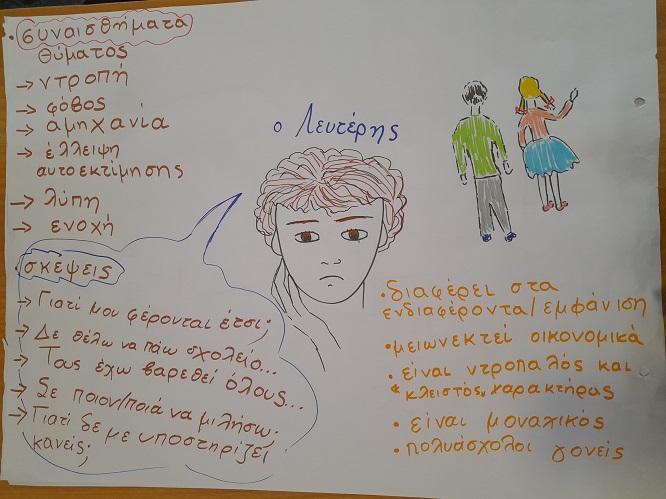 • συναισθήματα
θύματος
→ ντροπή
→ φόβος
→ αμηχανία
→ έλλειψη
αυτοεκτίμησης
→ λύπη
→ ενοχή
• σκέψεις
→ Γιατί μου φέρονται έτσι;
→ Δε θέλω να πάω σχολείο...
→ Τους έχω βαρεθεί όλους...
→ Σε ποιον/ποιά να μιλήσω;
→ Γιατί δε με υποστηρίζει
κανείς;
ο Λευτέρης
• διαφέρει στα
ενδιαφέροντα/εμφάνιση
• μειωνεκτεί οικονομικά
• είναι ντροπαλός και
"κλειστός" χαρακτήρας
• είναι μοναχικός
• πολυάσχολοι γονείς